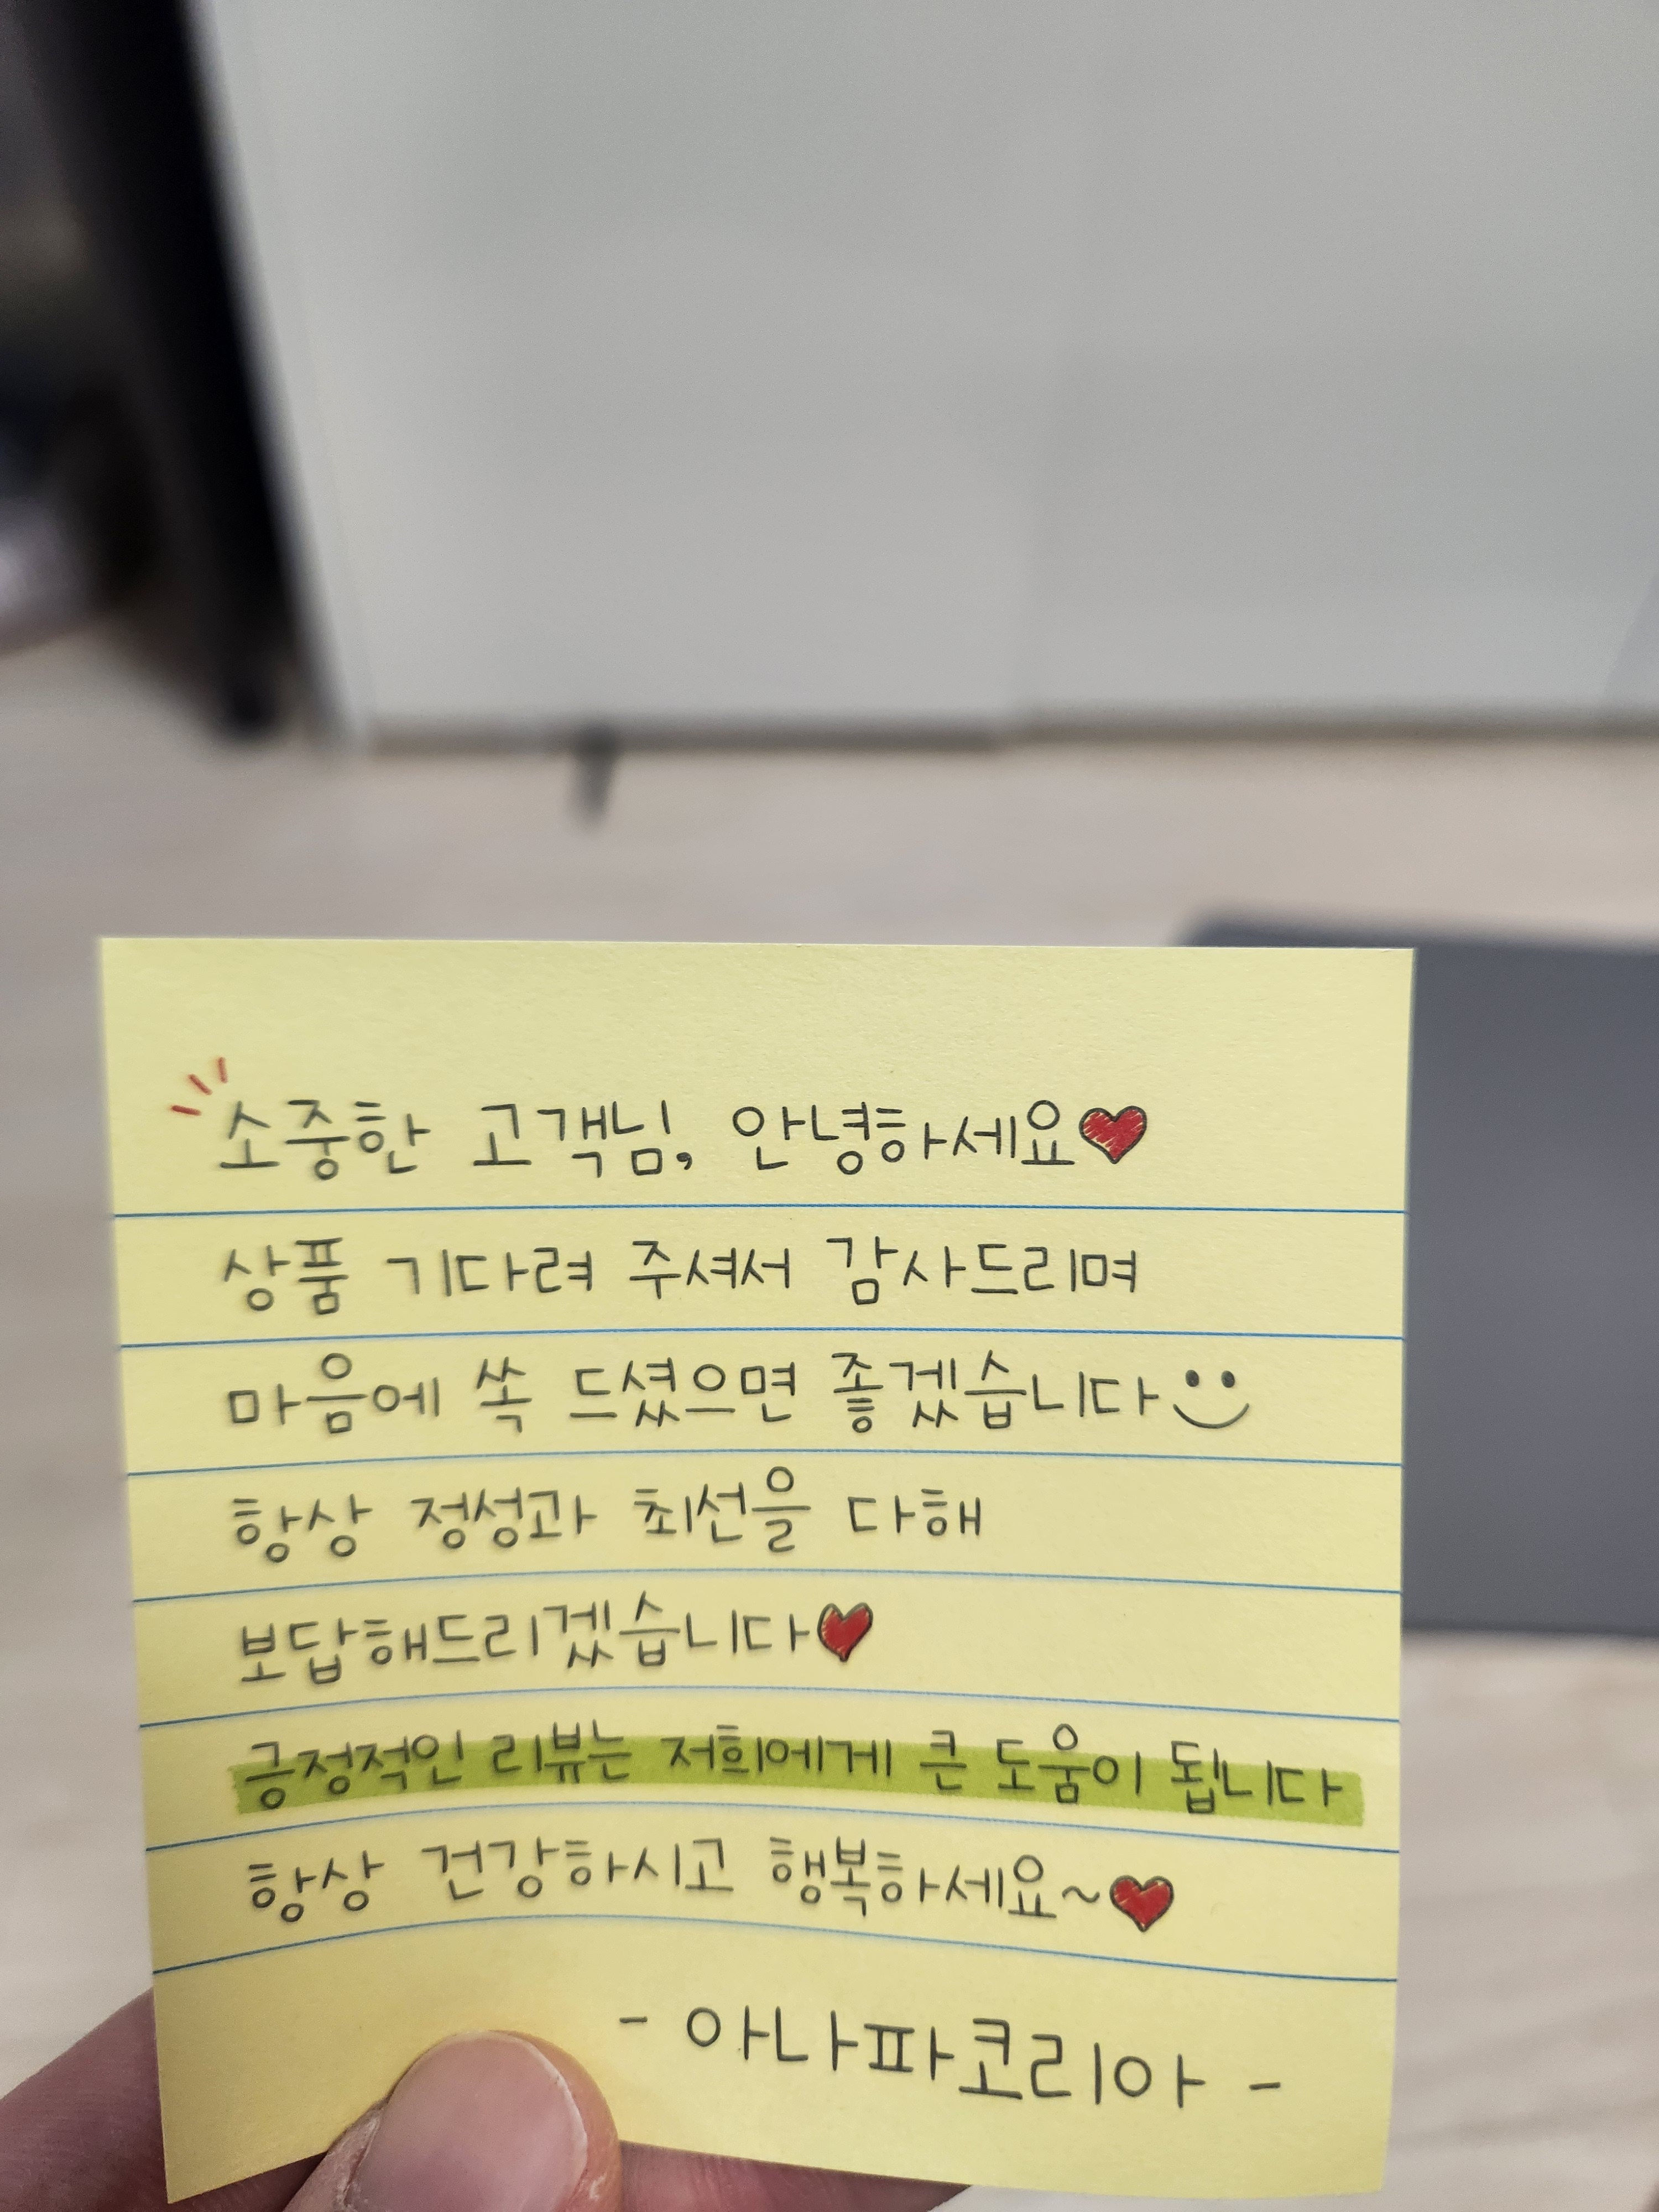 소중한 고객님, 안녕하세요♥
상품 기다려 주셔서 감사드리며
마음에 쏙 드셨으면 좋겠습니다
항상 정성과 최선을 다해
보답해드리겠습니다♥
긍정적인 리뷰는 저희에게 큰 도움이 됩니다
항상 건강하시고 행복하세요~♥
- 아나파코리아 -